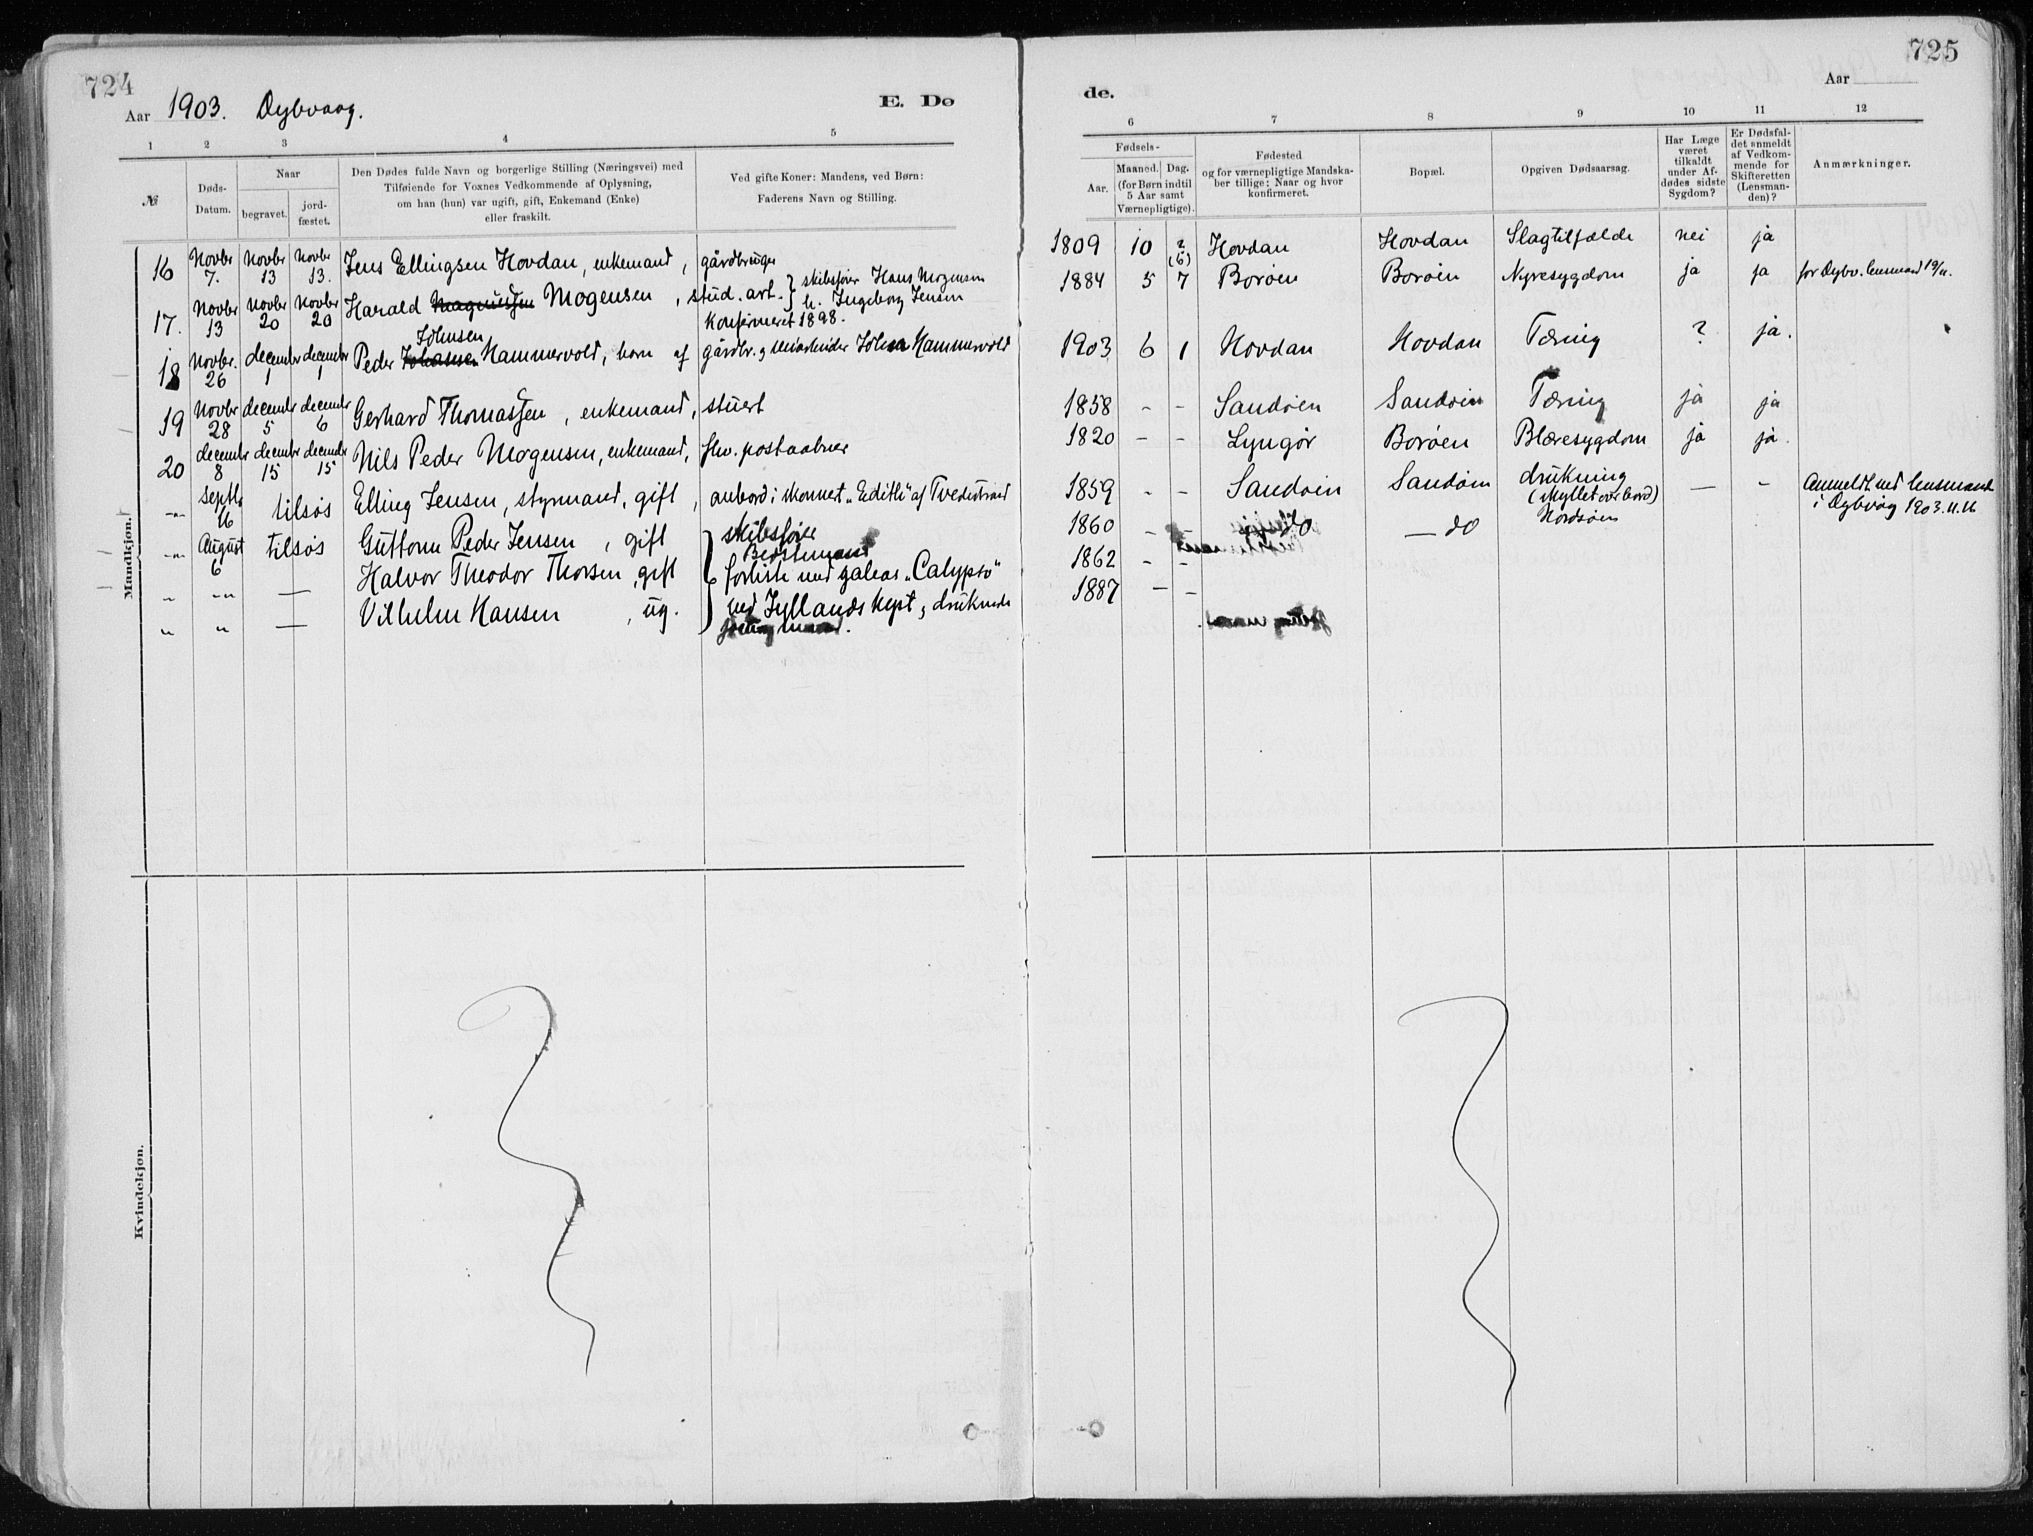 724
Aar 1903. Dybvaag.
E. Dø
1 2 3 4 5
№
Døds-Datum.
Naar
begravet.
jord-fæstet.
Den Dødes fulde Navn og borgerlige Stilling (Næringsvei) med
Tilføiende for Voxnes Vedkommende af Oplysning,
om han (hun) var ugift, gift, Enkemand (Enke)
eller fraskilt.
Ved gifte Koner: Mandens, ved Børn:
Faderens Navn og Stilling.
Mandkjøn.
16 Novbr 7. Novbr 13 Novbr 13. Jens Ellingsen Hovdan, enkemand, gårdbruger
17. Novbr 13 Novbr 20 Novbr 20 Harald Mogensen, stud. art. } skibsfører Hans Mogensen
h. Ingeborg Jensen
Konfirmeret 1898.
Johnsen
18 Novbr. 26 decembr 1 decembr 1 Peder Johansen Hammervold, barn af gårdbr. Hammervold
19 Novbr 28 decembr 5 decembr 6 Gerhard Thomassen, enkemand, stuert
20 decembr 8 decembr 15 decembr 15 Nils Peder Mogensen, enkemand, fhv. postaabner
-"- Septbr 16 tilsøs Elling Jensen, styrmand, gift, ombord i skonnert "Edith" af Tvedestrand
-"- August 6 tilsøs Guttorm Peder Jensen, gift } skibsfører
Bedstemand
" -"- — Halvor Theodor Thorsen, gift forliste med galeas "Calypso"
" " — Vilhelm Hansen, ug. ved Jyllands kyst, druknede
Kvindekjøn.
725
Aar
de.
6 7 8 9 10 11 12
Fødsels-
Aar.
Maaned. Dag.
(for Børn indtil
5 Aar samt
Værnepligtige).
Fødested
og for værnepligtige Mandska-
ber tillige: Naar og hvor
konfirmeret.
Bopæl.
Opgiven Dødsaarsag.
Har Læge
været
tilkaldt
under Af-
dødes sidste
Sygdom?
Er Dødsfal-
det anmeldt
af Vedkom-
mende for
Skifteretten
(Lensman-
den)?
Anmærkninger.
1809 10 ? (6) Hovdan Hovdan Slagtilfælde nei ja
1884 5 7 Borøen Borøen Nyresygdom ja ja for Dybv. lensmand 19/11.
1903 6 1 Hovdan Hovdan Tæring ? ja.
1858 - - Sandøen Sandøen Tæring ja ja
1820 - - Lyngør Borøen Blæresygdom ja ja.
1859 - - Sandøen Sandøen drukning
(skyllet over bord)
Nordsøen — - Anmeldt ved lensmand
i Dybvåg 1903.11.16
1860 - - do — do
1862 - -
1887 - -